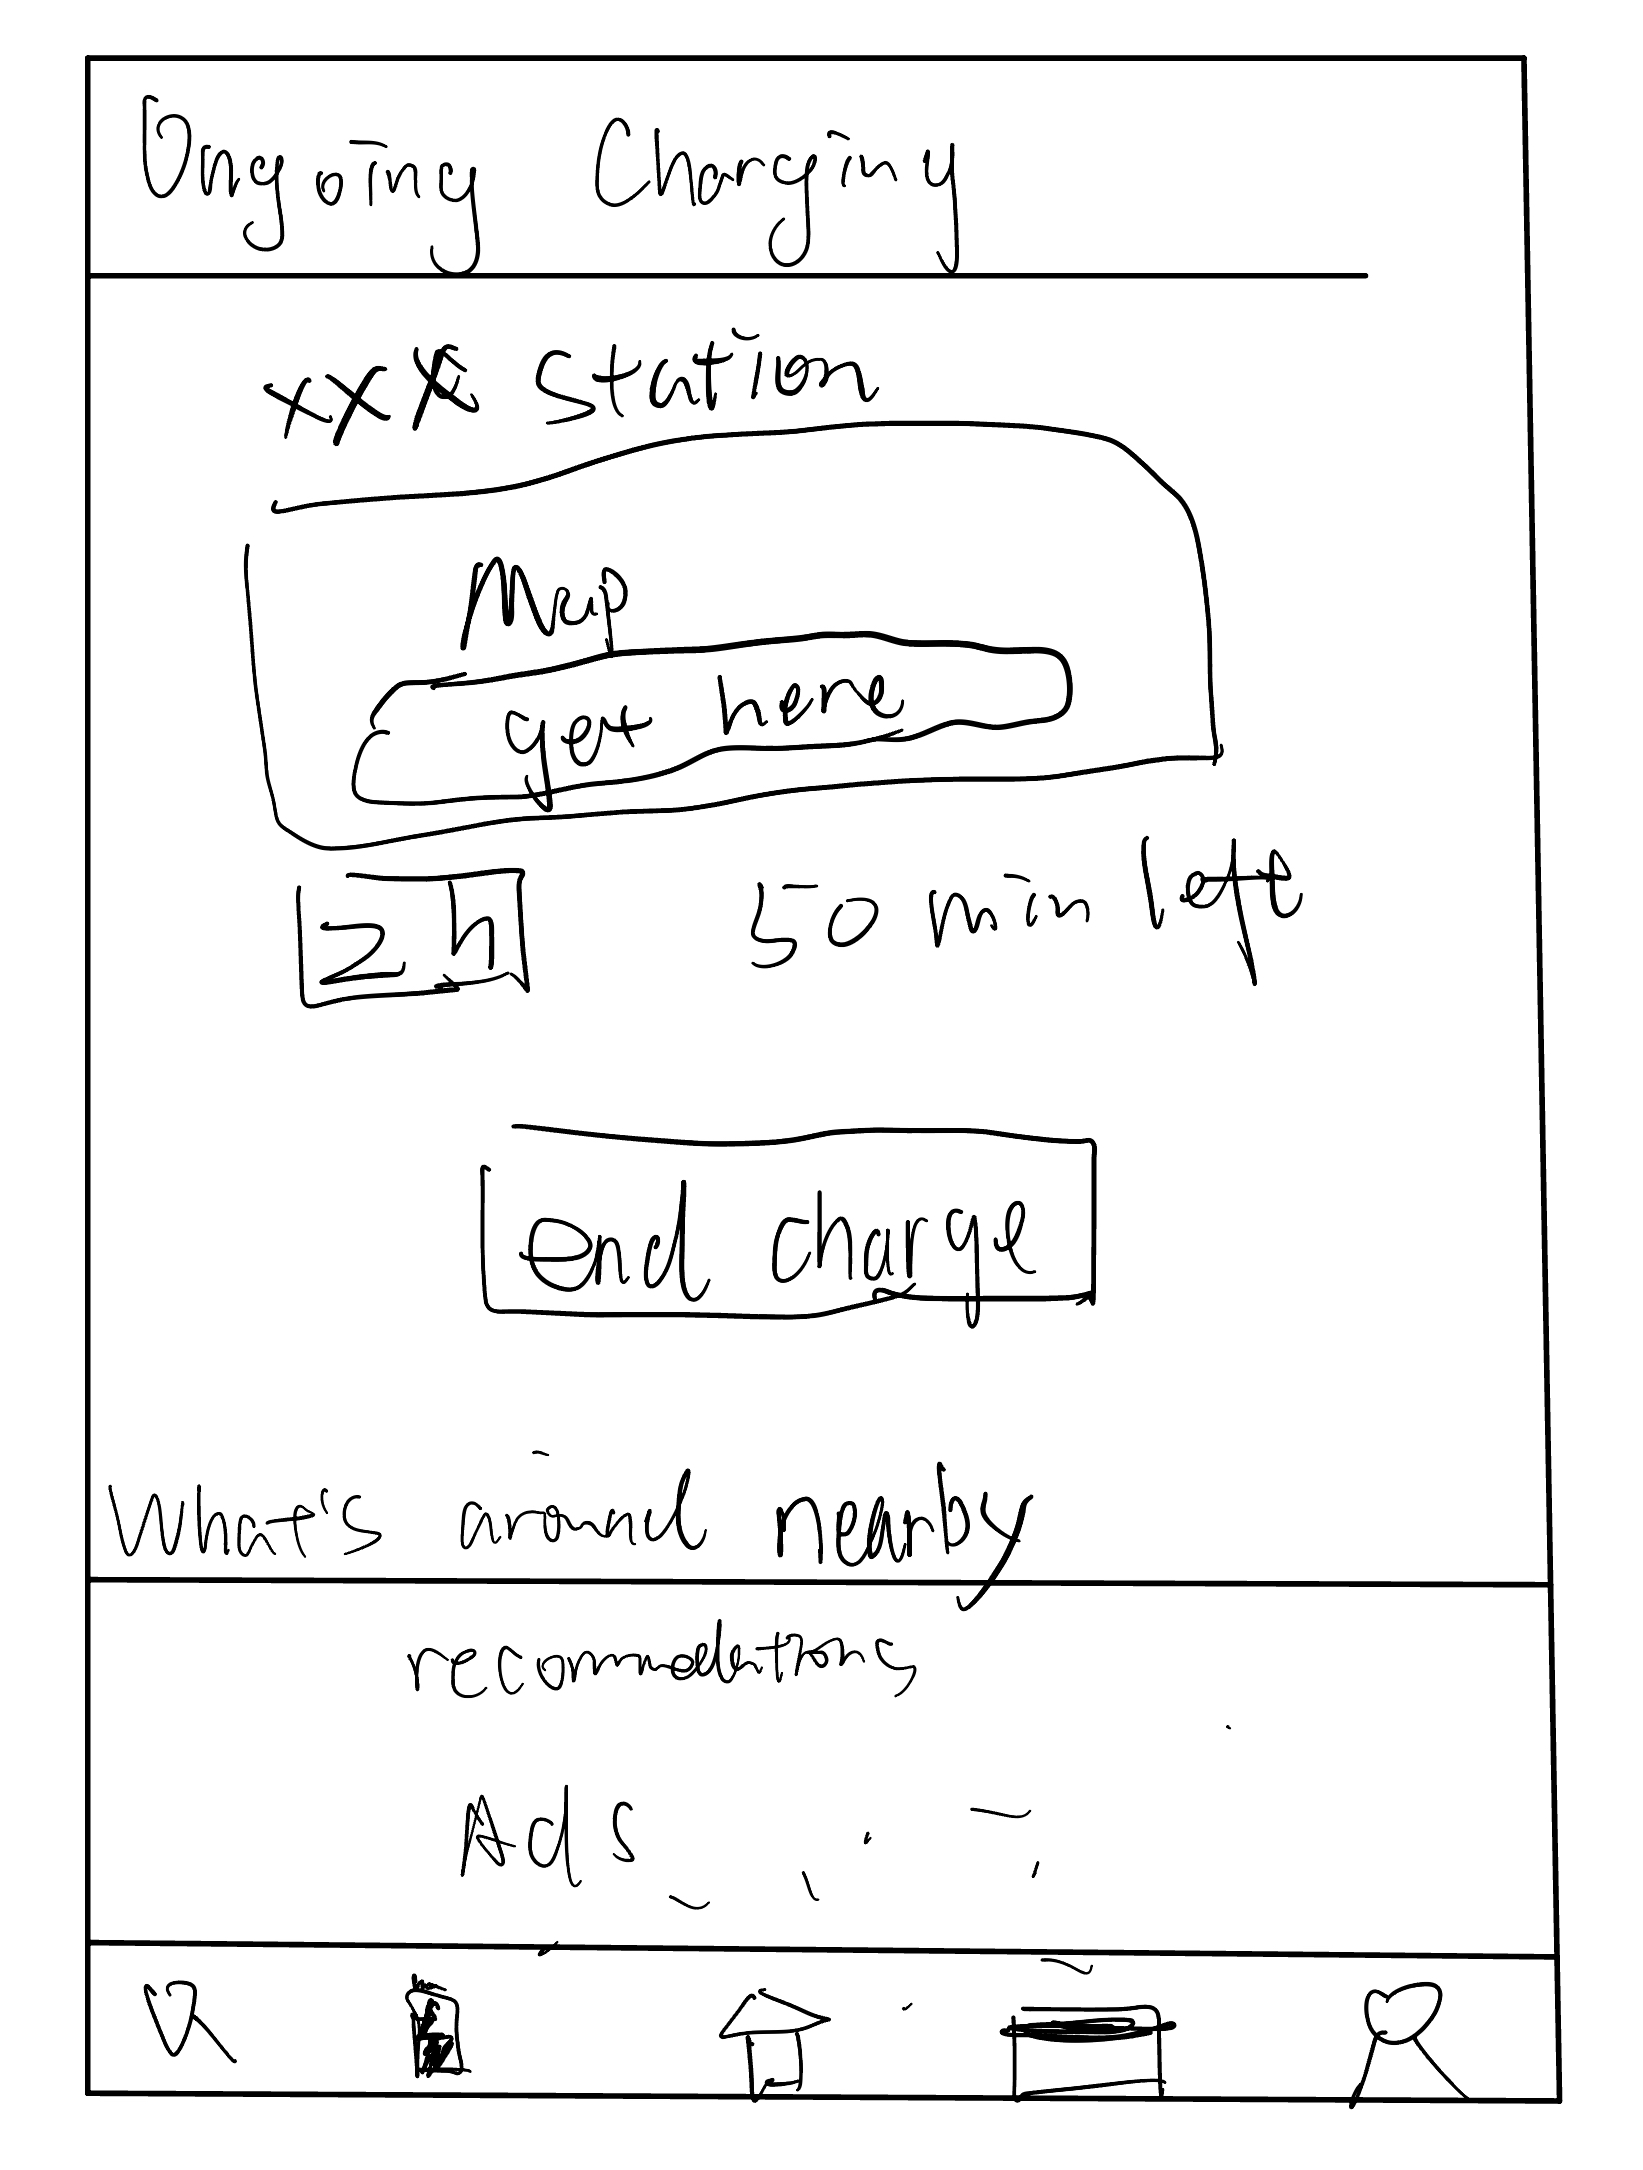 Ongoing Charging
xxx station
Map
get here
2h 50 min left
end charge
What's around nearby
recommedations
Ads